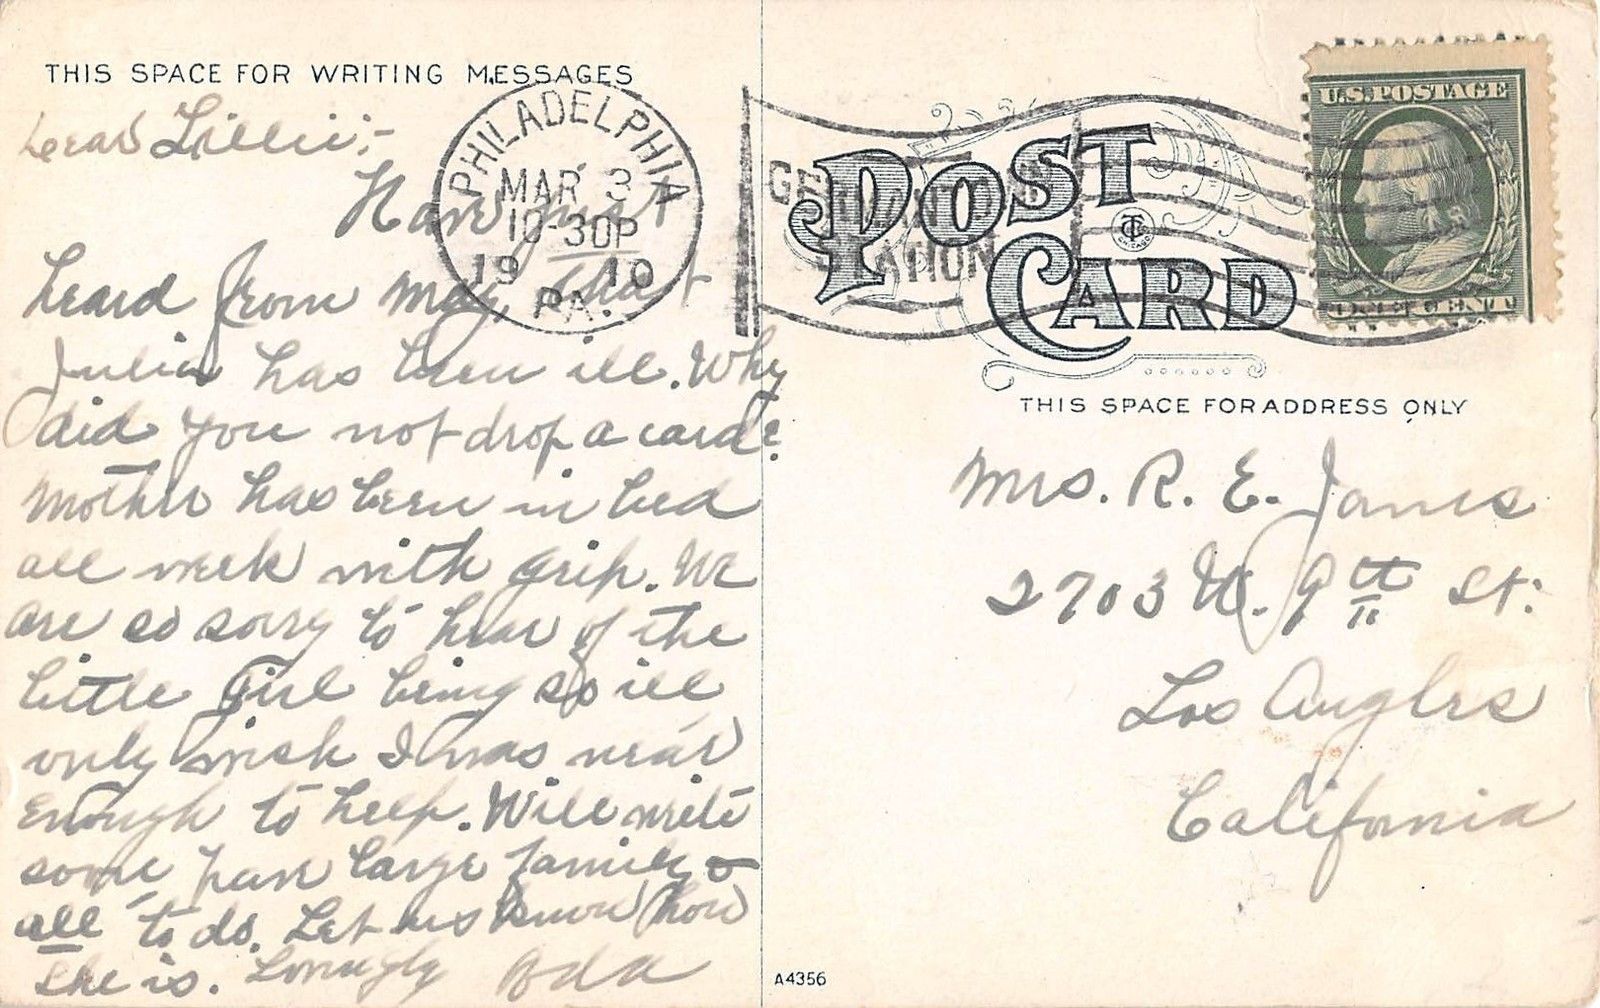 THIS SPACE FOR WRITING MESSAGES
Dear Lillie:-
Have just
heard from May, that
Julia has been ill. Why
did you not drop a card?
Mother has been in bed
all week with grip. We
are so sorry to hear of the
little girl being so ill
only wish I was near
enough to help. Will write
soon, have large family &
all to do. Let us know how
she is. Lovingly Ada
PHILADELPHIA
MAR 3
10-30P
1910
PA.
STATION
U.S. POSTAGE
ONE CENT
POST
CARD
CHICAGO
THIS SPACE FOR ADDRESS ONLY
Mrs. R. E. James
2703 W. 9th St:
Los Angles
California
A4356